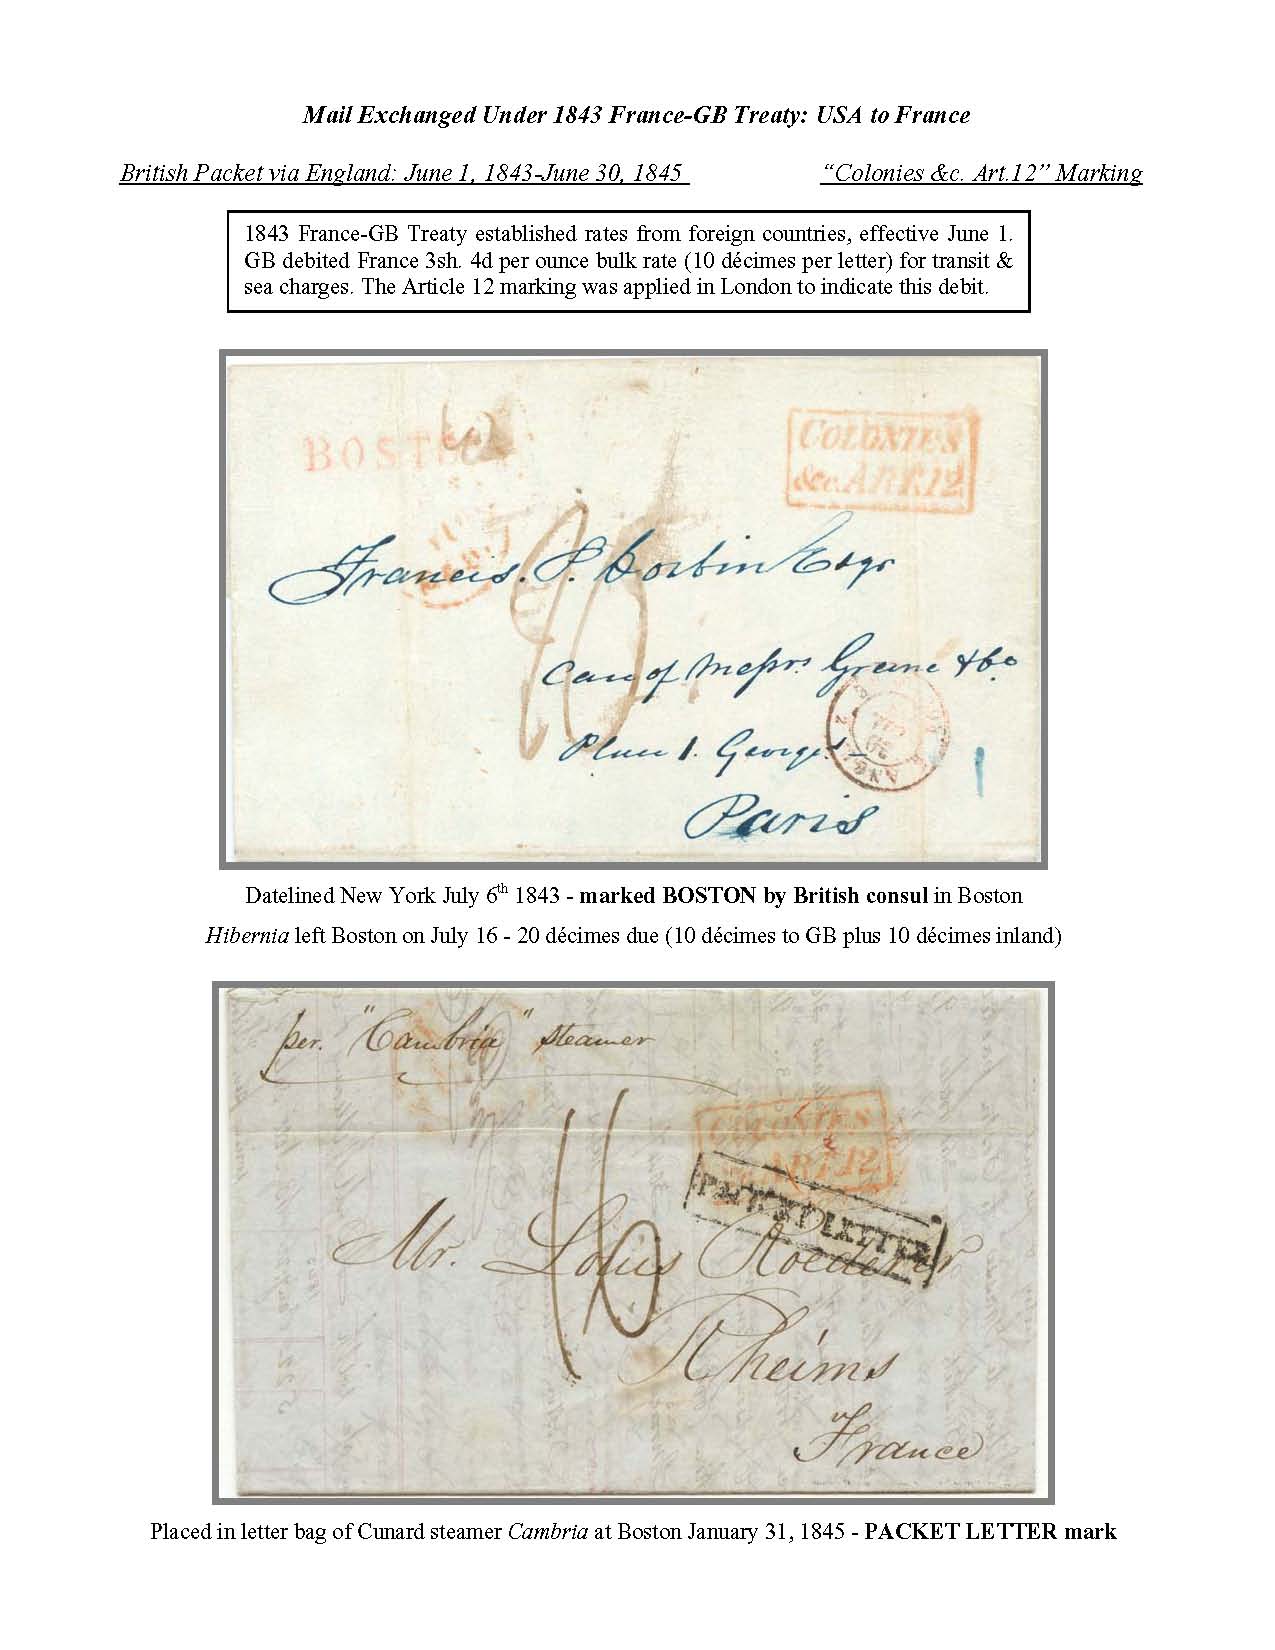 Mail Exchanged Under 1843 France-GB Treaty: USA to France
British Packet via England: June 1, 1843-June 30, 1845 “Colonies &c. Art.12” Marking
1843 France-GB Treaty established rates from foreign countries, effective June 1.
GB debited France 3sh. 4d per ounce bulk rate (10 décimes per letter) for transit &
sea charges. The Article 12 marking was applied in London to indicate this debit.
BOST
COLONIES
&c. ART. 12
Francis. P. Corbin Esqr
Care of Messrs. Greene & Co.
Place St. George
Paris
Datelined New York July 6th 1843 - marked BOSTON by British consul in Boston
Hibernia left Boston on July 16 - 20 décimes due (10 décimes to GB plus 10 décimes inland)
per. "Cambria" steamer
COLONIES
&c. ART. 12
PACKET LETTER
Mr. Louis Roederer
Rheims
France
Placed in letter bag of Cunard steamer Cambria at Boston January 31, 1845 - PACKET LETTER mark